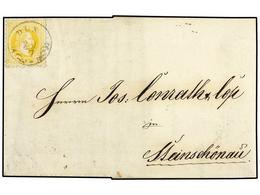 Herrn Jos. Conrath & Co
in
Steinschönau